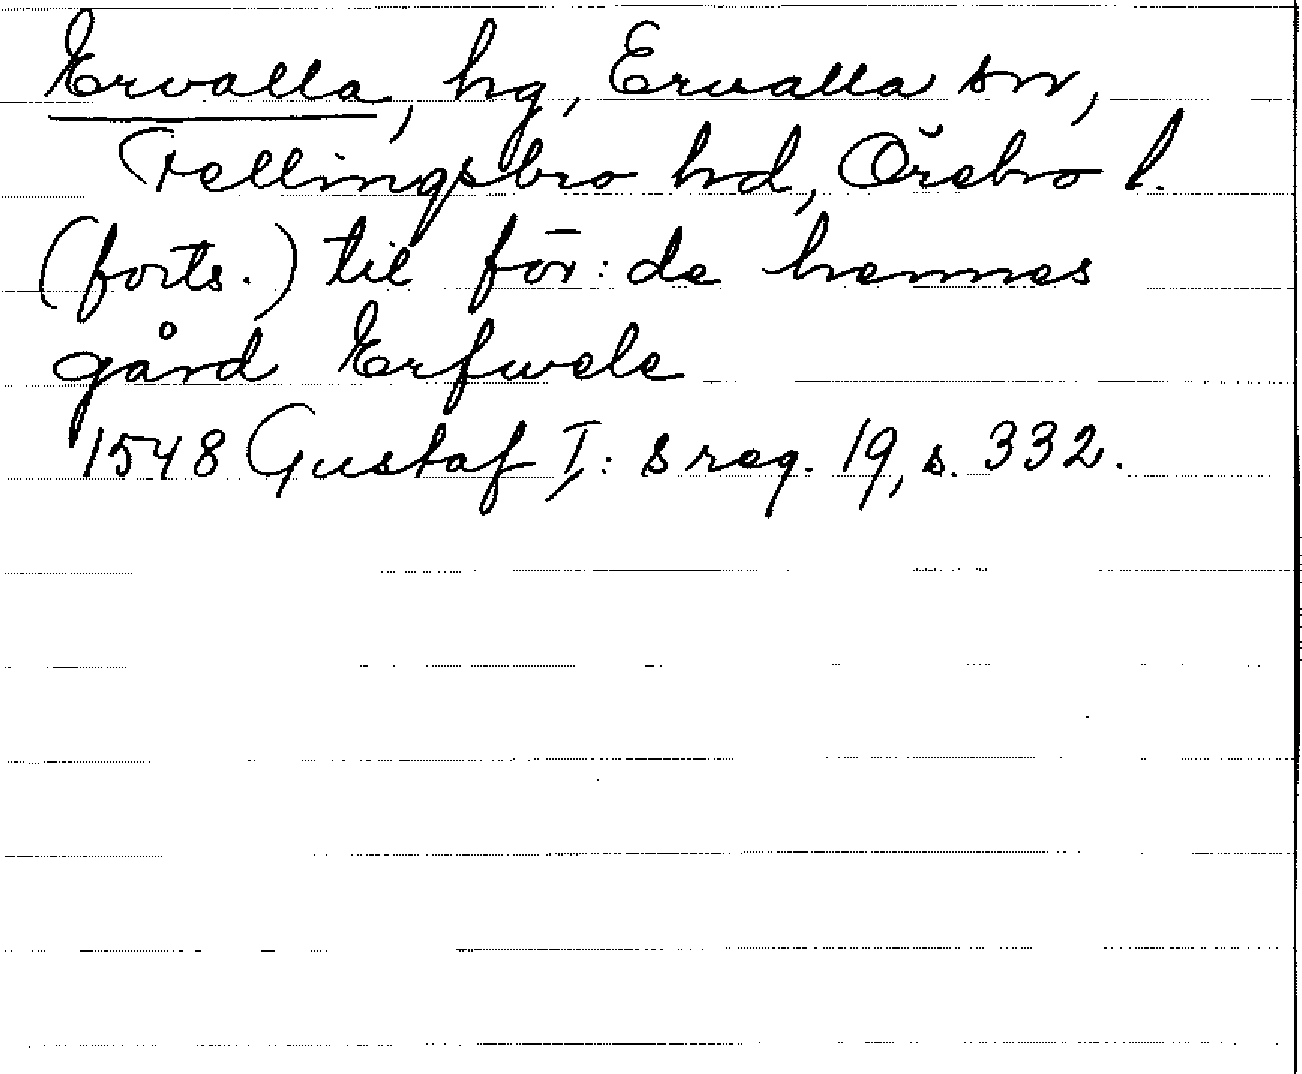 Ervalla, hg, Ervalla sn,
Fellingsbro hd, Örebro l.
(forts.) til för:de hennes
gård Erfwele
1548 Gustaf I:s reg. 19, s. 332.